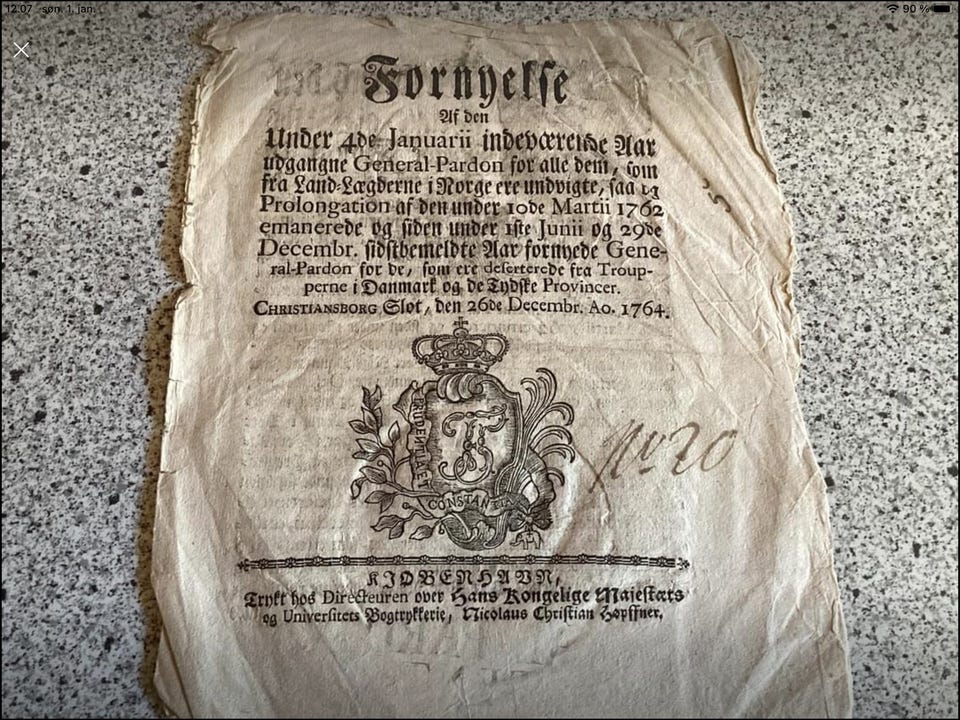 12.07 søn. 1. jan.
90 %
Fornyelse
Af den
Under 4de Januarii indeværende Aar
udgangne General-Pardon for alle dem, som
fra Land-Lægderne i Norge ere undvigte, saa og
Prolongation af den under 10de Martii 1762
emanerede og siden under 1ste Junii og 29de
Decembr. sidstbemeldte Aar fornyede Gene-
ral-Pardon for de, som ere deserterede fra Troup-
perne i Danmark og de Tydske Provincer.
CHRISTIANSBORG Slot, den 26de Decembr. Ao. 1764.
PRUDENTIA ET
CONSTANTIA
No 20
KIØBENHAVN,
Trykt hos Directeuren over Hans Kongelige Majestæts
og Universitets Bogtrykkerie, Nicolaus Christian Höpffner.